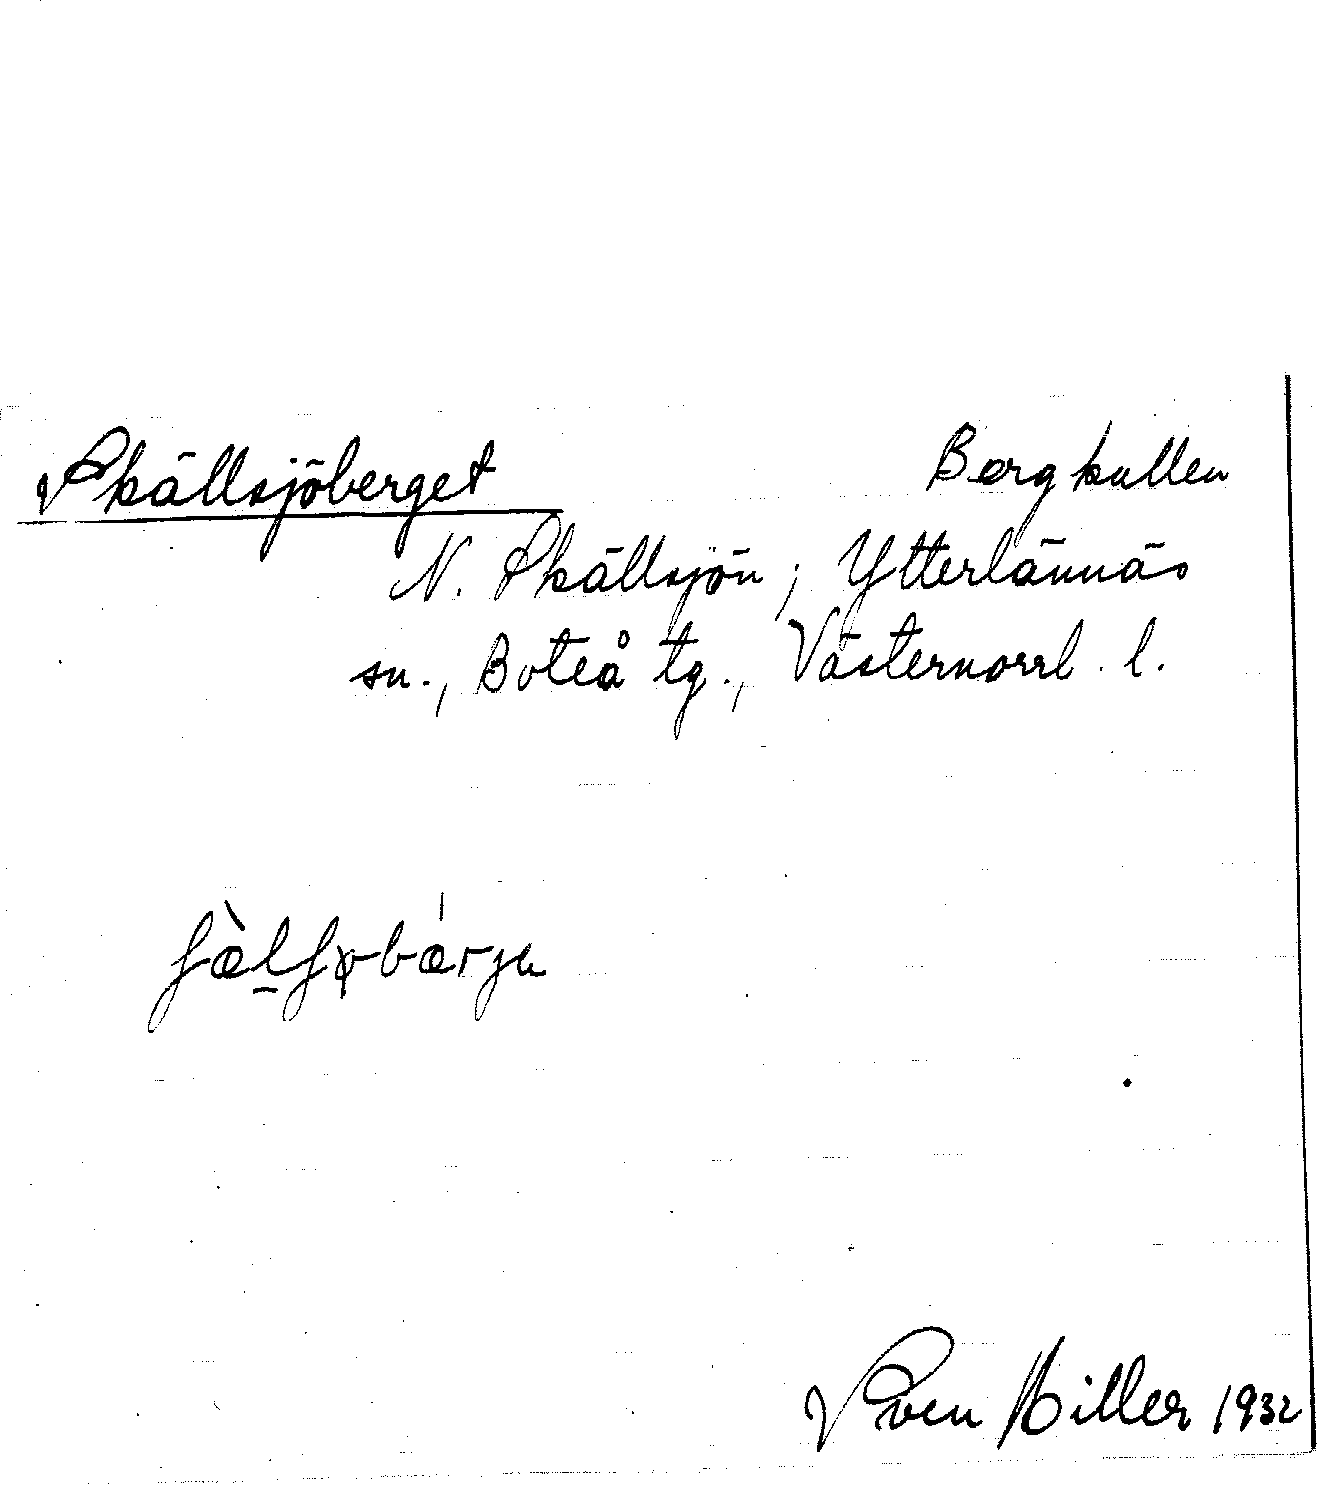 Skällsjöberget Bergkullen
N. Skällsjön; Ytterlännäs
sn., Boteå tg., Västernorrl. l.
ʃæ̀lʃøbǽrjə
Sven Hiller 1932